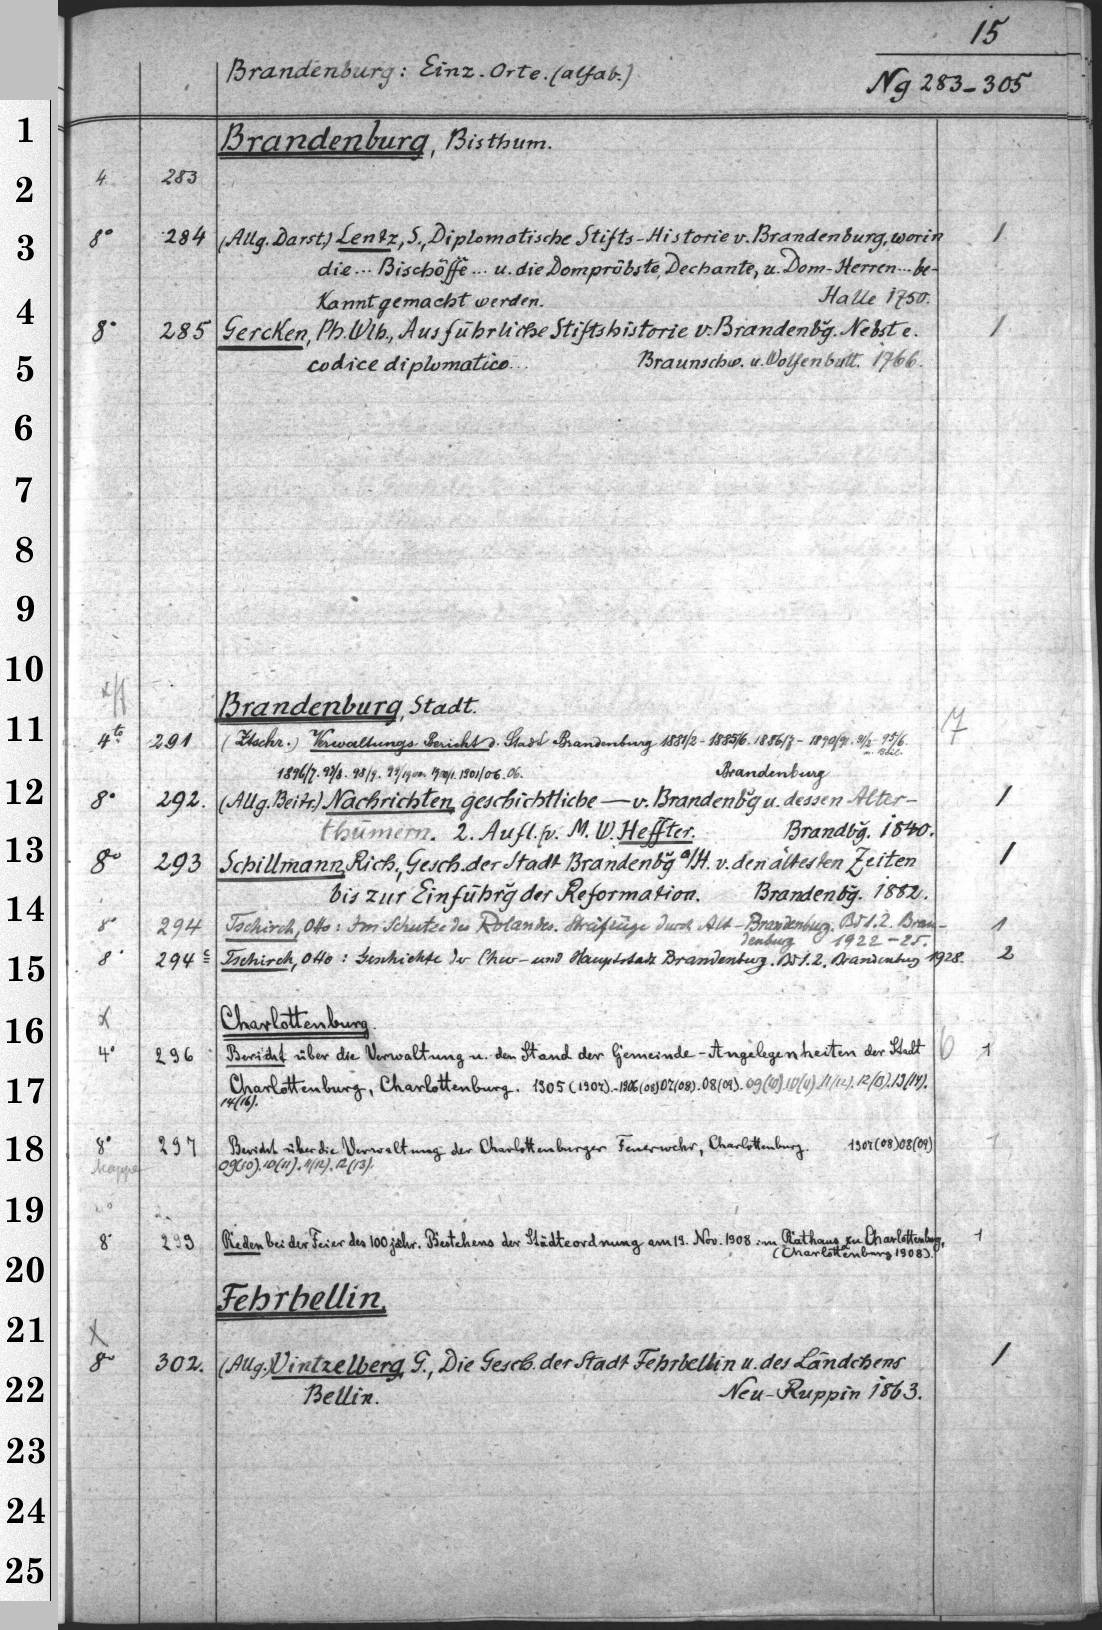 15
Brandenburg: Einz. Orte. (alfab.)
Ng 283-305
1
Brandenburg, Bisthum.
4. 283
2
8° 284 (Allg. Darst.) Lentz, S., Diplomatische Stifts-Historie v. Brandenburg, worin 1
3
die... Bischöffe... u. die Dompröbste, Dechante, u. Dom-Herren... be-
kannt gemacht werden. Halle 1750.
4
8° 285 Gercken, Ph. Wlh., Ausführliche Stiftshistorie v. Brandenbg̃. Nebst e. 1
codice diplomatico... Braunschw. u. Wolfenbutt. 1766.
5
6
7
8
9
10
Brandenburg, Stadt.
11
4to 291 (Ztschr.) Verwaltungs Bericht d. Stadt Brandenburg 1881/2-1885/6. 1886/7-1890/91. 91/2- 95/6. 7
1896/7. 97/8. 98/9. 1901/06. 06. Brandenburg
12
8° 292. (Allg. Beitr.) Nachrichten, geschichtliche — v. Brandenbg̃ u. dessen Alter- 1
thümern. 2. Aufl. /v. M. W. Heffter. Brandbg̃. 1840.
13
8° 293 Schillmann, Rich., Gesch. der Stadt Brandenbg̃ a/H. v. den ältesten Zeiten 1
bis zur Einführg̃ der Reformation. Brandenbg̃. 1882.
14
8° 294 Tschirch, Otto: Im Schutze des Rolandes. Streifzüge durch Alt-Brandenburg. Bd 1.2. Bran- 1
denburg 1922-25.
15
8° 294 c Tschirch, Otto: Geschichte der Chur- und Hauptstadt Brandenburg. Bd 1.2. Brandenburg 1928. 2
16
x
Charlottenburg.
4° 296 Bericht über die Verwaltung u. den Stand der Gemeinde-Angelegenheiten der Stadt 6 1
17
Charlottenburg, Charlottenburg. 1905 (1907).-1906(08)07(08). 08(09). 09(10) 10(11). 11(12). 12(13). 13(14).
14(16).
18
8° 297 Bericht über die Verwaltung der Charlottenburger Feuerwehr, Charlottenburg. 1907(08)08(09) 1
Mappe 09(10). 10(11). 11(12). 12(13).
19
8° 299 Reden bei der Feier des 100 jähr. Bestehens der Städteordnung am 19. Nov. 1908 im Rathaus zu Charlottenburg, 1
(Charlottenburg 1908).
20
Fehrbellin.
21
x
8° 302. (Allg.) Vintzelberg, G., Die Gesch. der Stadt Fehrbellin u. des Ländchens 1
22
Bellin. Neu-Ruppin 1863.
23
24
25